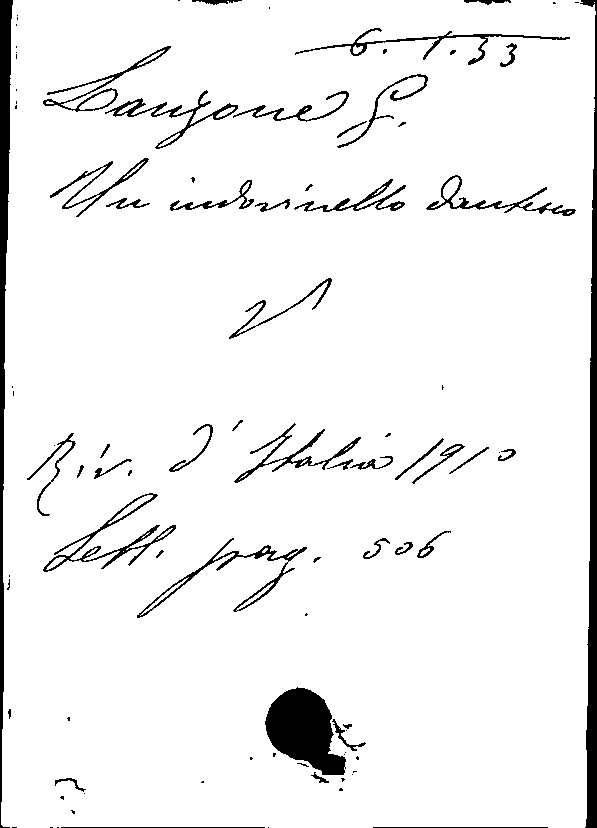 6.1.33
Lanzone G.
Un indovinello dantesco
Riv. d'Italia 1910
Sett. pag. 506